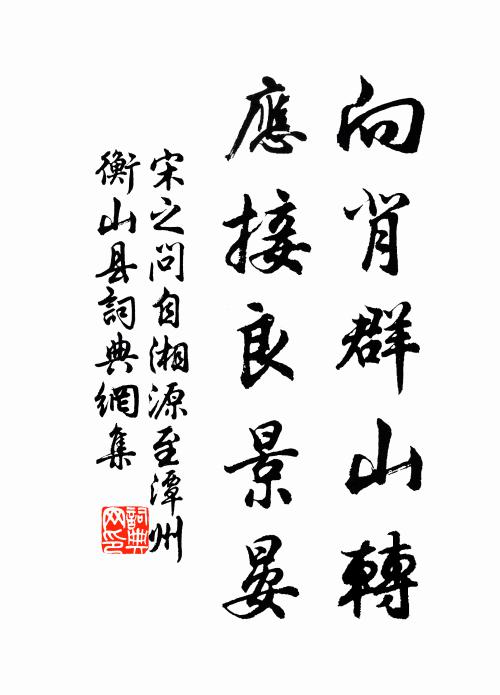 向背群山轉
應接良景晏
宋之問自湘源至潭州
衡山县詞典網集
詞典网印